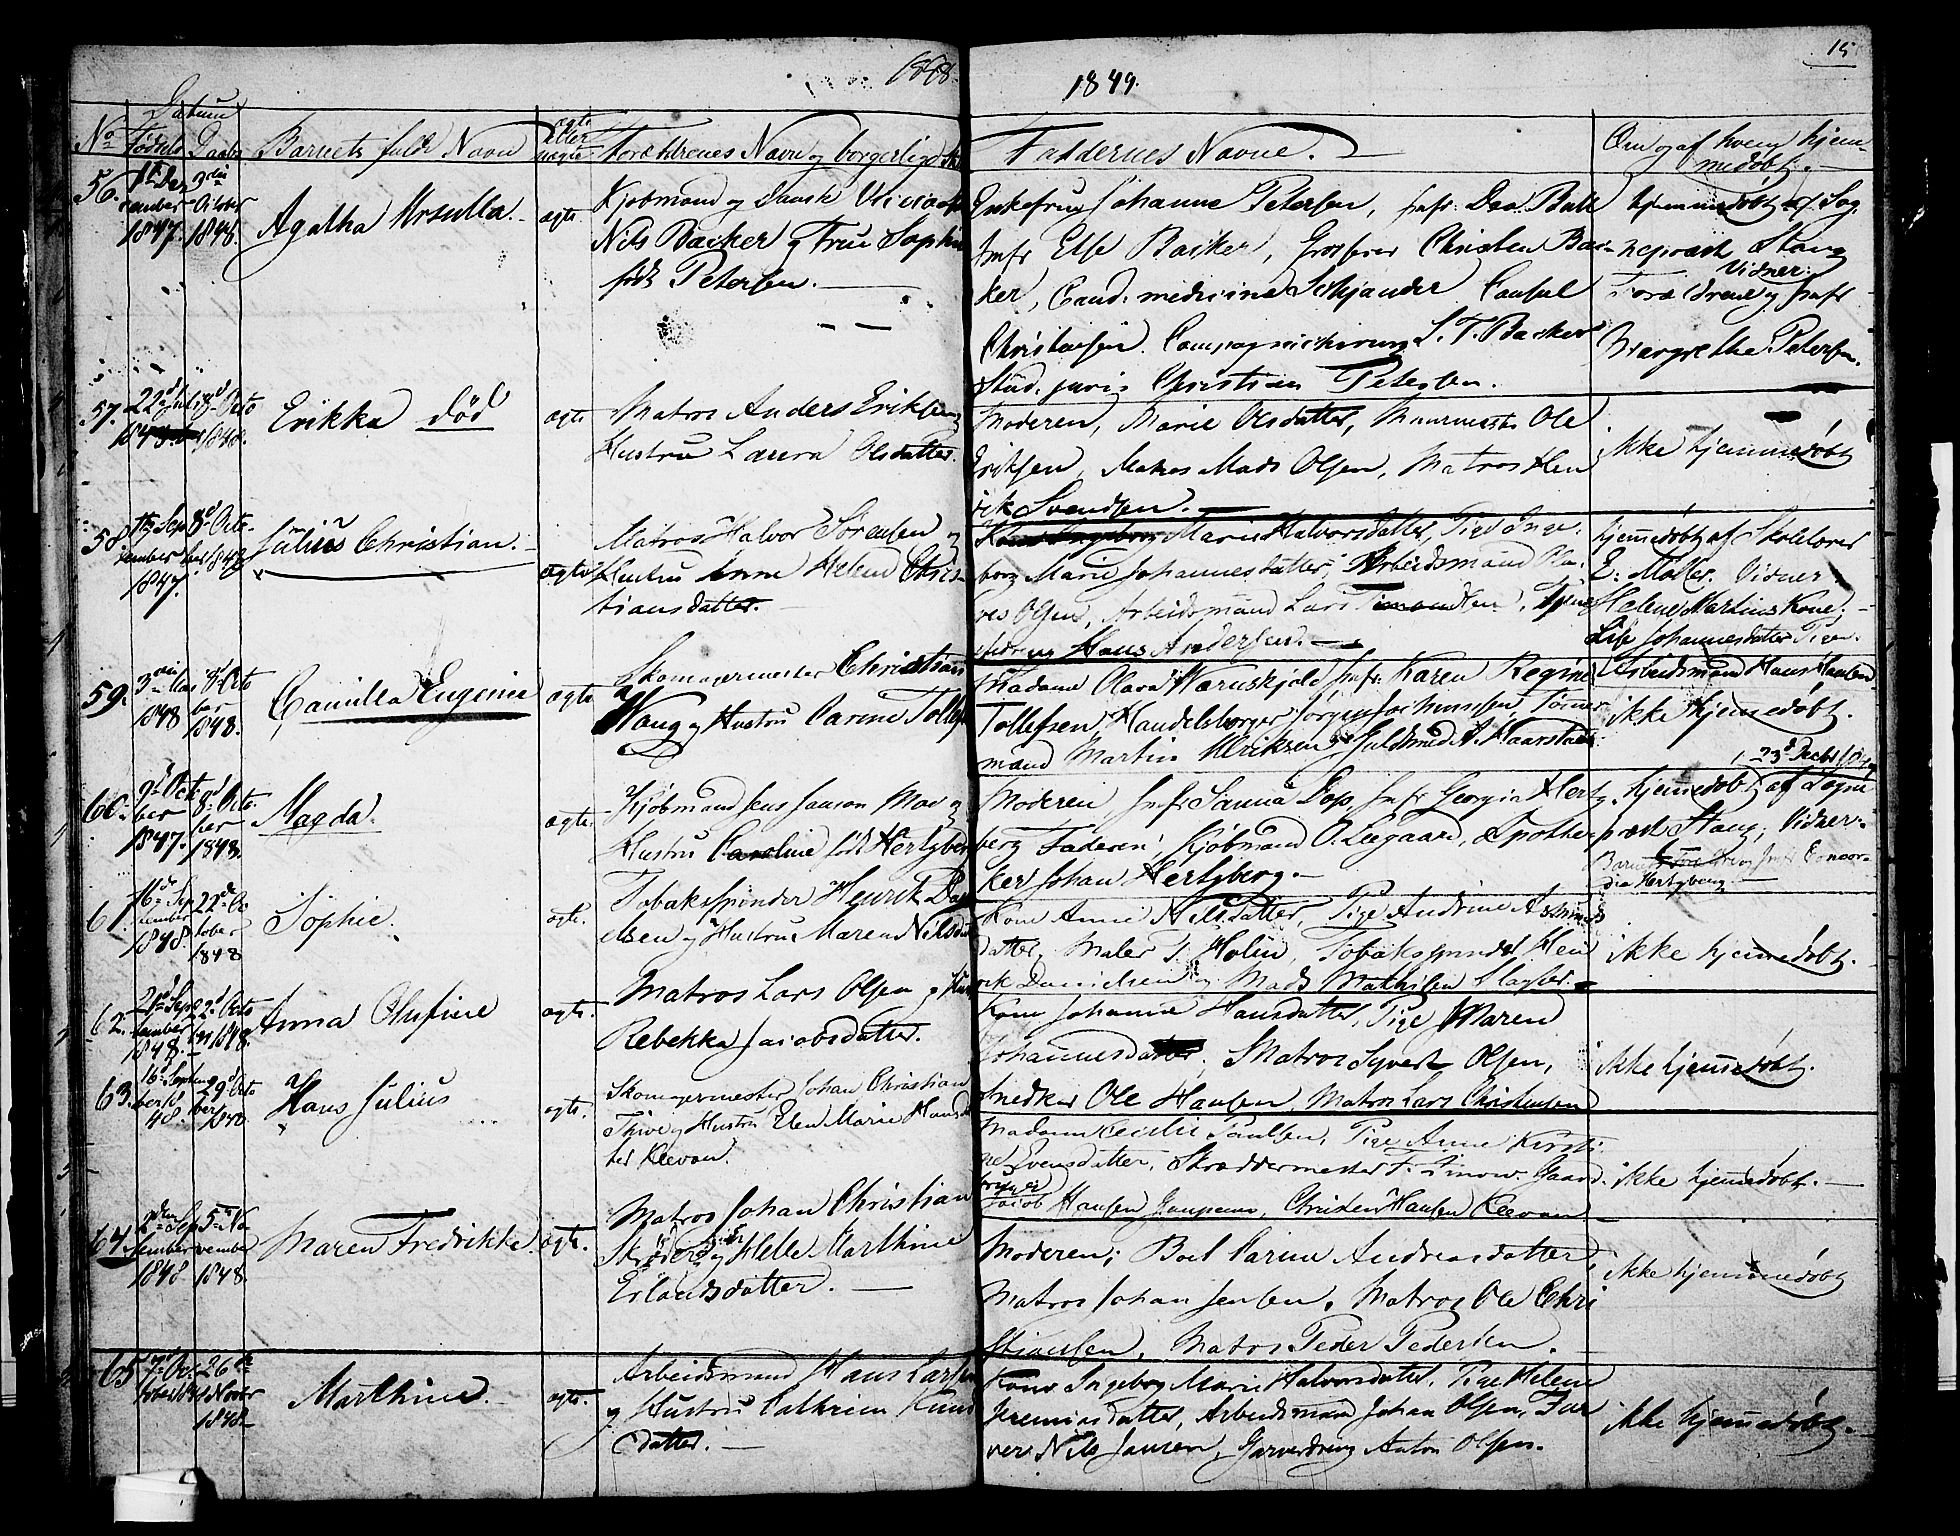 1848
1849.
15
Datum
No Fødsels Daabs Barnets fulde Navn ægte eller uægte Forældrenes Navn og borgerlige
Faddernes Navne.
Om og af hvem hjem-
medøbt.
56. 1ste De-
cember
1847.
3die
October
1848.
Agatha Ursulla.
ægte
Kjøbmand og Dansk Viceconsul
Nils Backer og Frue Sophie
født Petersen.
Enkefrue Johanne Petersen, Jmfr
Jmfr Else Backer, Grosserer Christen Bac-
ker, Cand: medicine Schjander Consul
Christensen. Compagniechirurg S. T. Backer
Stud. juris Christian Petersen.
hjemmedøbt af Sog-
neprest Stang
Vidner:
Forældrene og Jmfr
Margrethe Petersen.
57. 22d Juli
8d Octo
1848.
Erikka død
ægte
Matros Anders Eriksen
Hustru Laura Olsdatter.
Moderen, Marie Olsdatter, Muurmester Ole
Eriksen, Matros Mads Olsen, Matros Hen
rik Svendsen.
ikke hjemmedøbt
58 Sep
tember
1847.
8d Octo-
ber 1848
Julius Christian.
ægte
Matros Halvor Sørensen og
Hustru Anne Helene Chris-
tiansdatter.
Marie Halvorsdatter, Pige Inge-
borg Marie Johannesdatter, Arbeidsmand
Olsen, Arbeidsmand Lars
Hans Andersen.
hjemmedøbt af Skolelærer
E. Møller. Vidner.
Helene Martins Kone.
Lise Johannesdatter Pige.
Arbeidsmand Hans Hansen
59. 3die Mai
1848
8d Octo
ber
1848.
Camilla Eugenie
ægte
Skomagermester Christian
Waug og Hustru Carine Tollefs
Madame Olava Wærnskjold Jmfr. Karen Regine
Tollefsen Handelsborger Jørgen Jochumsen, Tømer
mand Martin Eriksen Guldsmed A. Haarstad
ikke hjemmedøbt.
60. 9d Octo
ber
1847.
8d Octo-
ber
1848.
Magda.
ægte.
Kjøbmand Jens Jansen Moe og
Hustru Caroline født Hertzberg
Moderen Jmfr Sanna Dop, Jmfr Georgia Hertz-
berg Faderen, Kjøbmand O. Liegaard, Apothe-
ker Johan Hertzberg.
hjemmedøbt af Sogne
prest Stang, Vidner.
Barnets Forældre og Jmfr Concor-
dia Hertzberg
61. 16d Sep
tember
1848.
22de Oc
tober
1848
Sophie.
ægte.
Tobaksspinder Henrik Da
elsen og Hustru Maren Nilsdat
Kone Anne Nilsdatter, Pige Andrine Asmunds
datter, Maler T. Holm, Tobaksspinder Hen
rik Danielsen og Mads Mathisen Slagter.
ikke hjemmedøbt.
62. 21d Sep
tember
1848.
22d Octo
ber 1848.
Anna Olufine
ægte.
Matros Lars Olsen og Hust
Rebekka Jacobsdatter.
Kone Johanne Hansdatter, Pige Maren
Johannesdatter, Matros Syvert Olsen,
Snedker Ole Hansen, Matros Lars Christensen
ikke hjemmedøbt.
63. 16d Septem
ber 18
48.
29d Octo
ber
1848
Hans Julius
ægte.
Skomagermester Johan Christian
Thive og Hustru Elen Marie Hansdat
ter Klevan.
Madam Cecilie Paulsen, Pige Anne Kirsti
ne Evensdatter, Skræddermester F. Simow. Gaard
bruger
Jacob Hansen Christen Hansen Klevan
ikke hjemmedøbt.
64. 2den Sep
tember
1848
5te No
vember
1848.
Maren Fredrikke.
ægte.
Matros Johan Christian
Skøderd og Helle Marthine
Erlandsdatter.
Moderen; Boel Carine Andreasdatter,
Matros Johan Jensen, Matros Ole Chri
stiansen, Matros Peder Pedersen.
ikke hjemmedøbt
65 7de Oc-
26de
Novbr
1848
Marthine.
ægte.
Arbeidsmand Hans Larsen
og Hustru Cathrine Knud
datter.
Kone Ingeborg Marie Halvorsdatter, Pige Helene
Jeremiasdatter, Arbeidsmand Johan Olsen, Far
ver Nils Jansen, Garversvend Anton Olsen.
ikke hjemmedøbt.